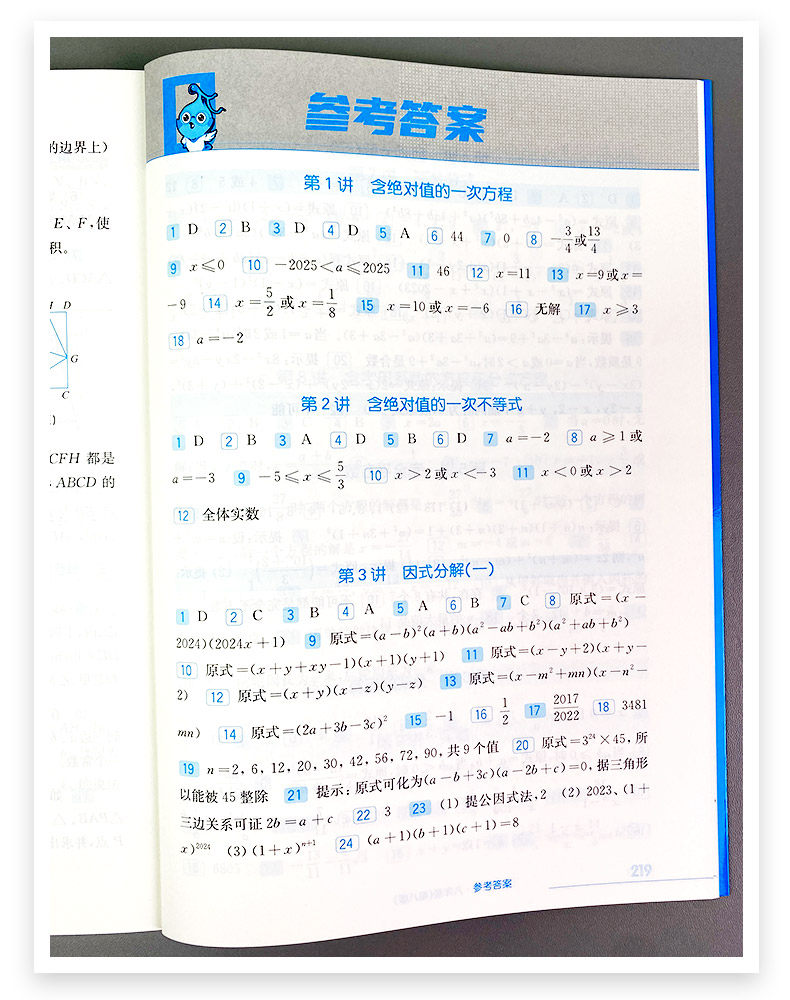 的边界上）
E、F,使
积。
D
G
C
CFH 都是
ABCD 的
参考答案
第1讲 含绝对值的一次方程
1 D 2 B 3 D 4 D 5 A 6 44 7 0 8 -3/4或13/4
9 x≤0 10 -2025<a≤2025 11 46 12 x=11 13 x=9或x=
-9 14 x=5/2或x=1/8 15 x=10或x=-6 16 无解 17 x≥3
18 a=-2
第2讲 含绝对值的一次不等式
1 D 2 B 3 A 4 D 5 B 6 D 7 a=-2 8 a≥1或
a=-3 9 -5≤x≤5/3 10 x>2或x<-3 11 x<0或x>2
12 全体实数
第3讲 因式分解(一)
1 D 2 C 3 B 4 A 5 A 6 B 7 C 8 原式=(x-
2024)(2024x+1) 9 原式=(a-b)²(a+b)(a²-ab+b²)(a²+ab+b²)
10 原式=(x+y+xy-1)(x+1)(y+1) 11 原式=(x-y+2)(x+y-
2) 12 原式=(x+y)(x-z)(y-z) 13 原式=(x-m²+mn)(x-n²-
mn) 14 原式=(2a+3b-3c)² 15 -1 16 1/2 17 2017/2022 18 3481
19 n=2,6,12,20,30,42,56,72,90,共9个值 20 原式=3²⁴×45,所
以能被45整除 21 提示:原式可化为(a-b+3c)(a-2b+c)=0,据三角形
三边关系可证2b=a+c 22 3 23 (1)提公因式法,2 (2)2023、(1+
x)²⁰²⁴ (3)(1+x)ⁿ⁺¹ 24 (a+1)(b+1)(c+1)=8
参考答案
219